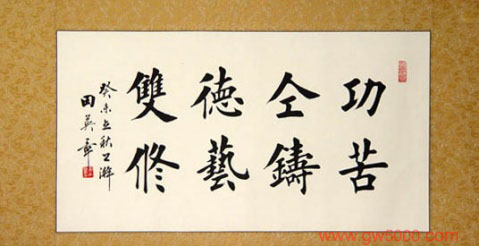 功苦
仝鑄
徳藝
雙修
癸未秋
田英章
www.gw5000.com